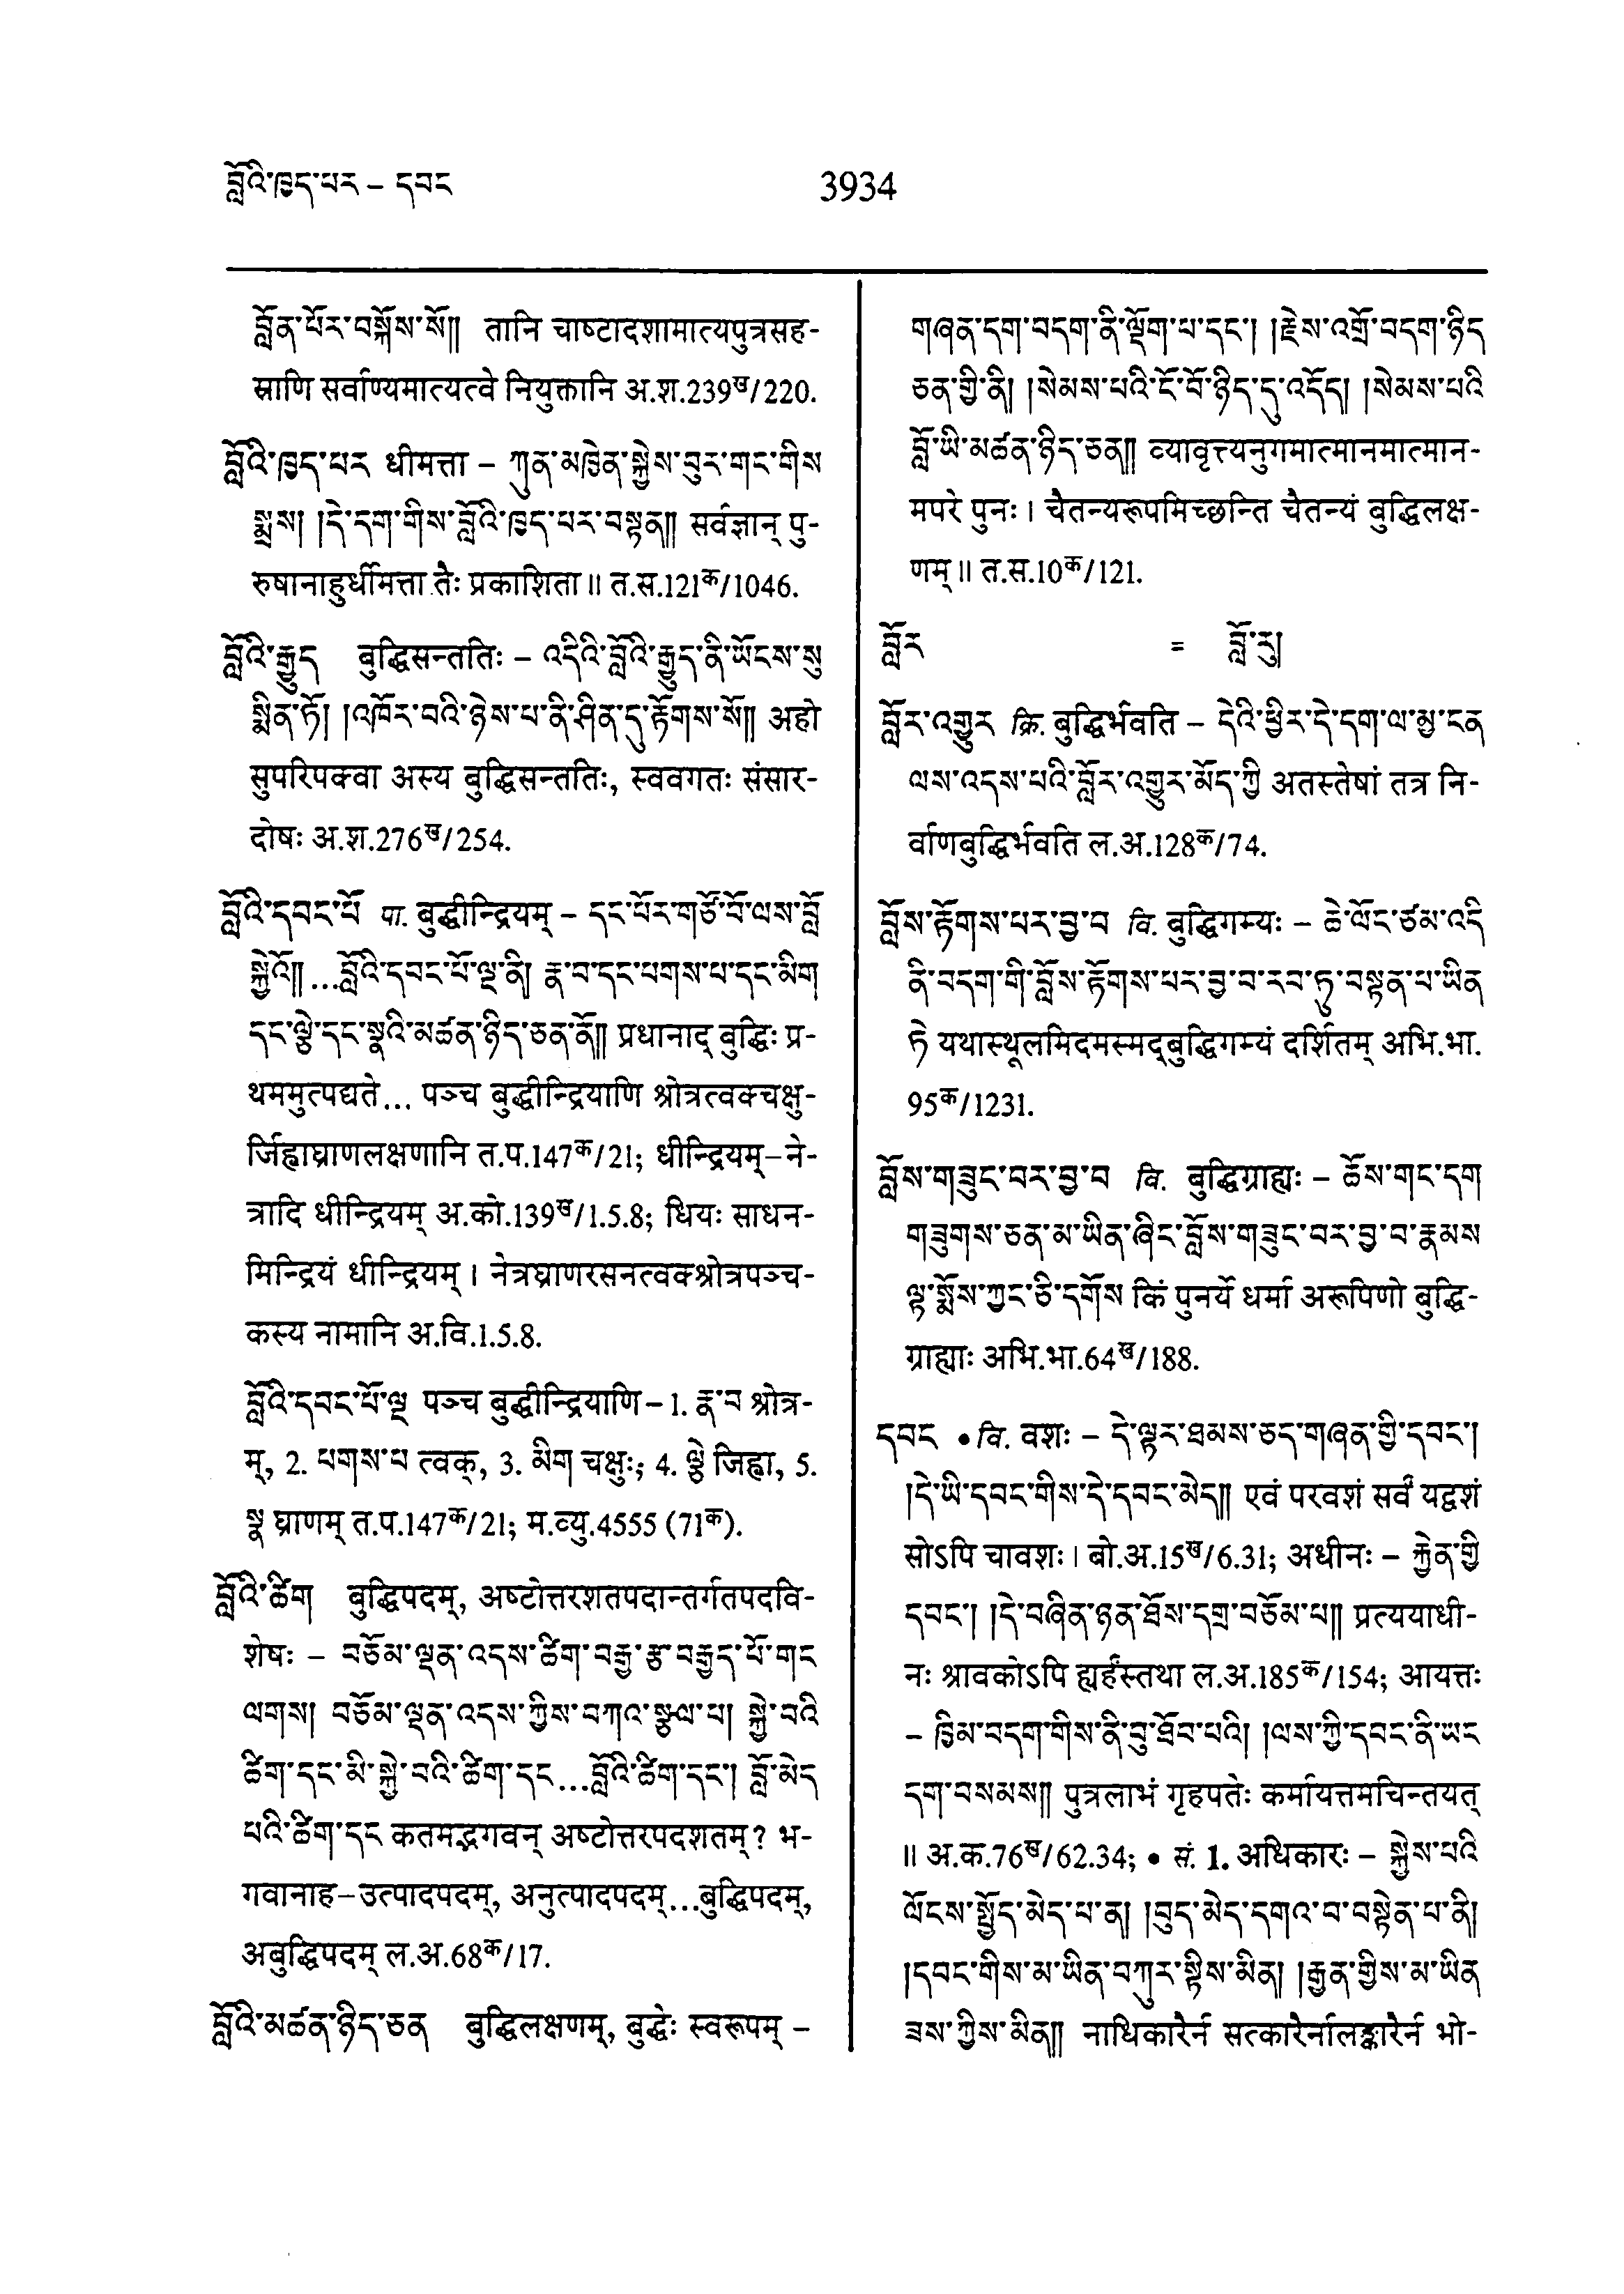 བློའི་ཁྱད་པར – དབང
3934
བློན་པོར་བསྐོས་སོ༎ तानि चाष्टादशामात्यपुत्रसह-
स्राणि सर्वाण्यमात्यत्वे नियुक्तानि अ.श.239ख/220.
བློའི་ཁྱད་པར धीमत्ता – ཀུན་མཁྱེན་སྐྱེས་བུར་གང་གིས
སྨྲས། །དེ་དག་གིས་བློའི་ཁྱད་པར་བསྟན༎ सर्वज्ञान् पु-
रुषानाहुर्धीमत्ता तैः प्रकाशिता॥ त.स.121क/1046.
བློའི་རྒྱུད बुद्धिसन्ततिः – འདིའི་བློའི་རྒྱུད་ནི་ཡོངས་སུ
སྨིན་ཏོ། །འཁོར་བའི་ཉེས་པ་ནི་ཤིན་དུ་རྟོགས་སོ༎ अहो
सुपरिपक्वा अस्य बुद्धिसन्ततिः, स्ववगतः संसार-
दोषः अ.श.276ख/254.
བློའི་དབང་པོ पा. बुद्धीन्द्रियम् – དང་པོར་གཙོ་བོ་ལས་བློ
སྐྱེའོ༎ ...བློའི་དབང་པོ་ལྔ་ནི། རྣ་བ་དང་པགས་པ་དང་མིག
དང་ལྕེ་དང་སྣའི་མཚན་ཉིད་ཅན་ནོ༎ प्रधानाद् बुद्धिः प्र-
थममुत्पद्यते... पञ्च बुद्धीन्द्रियाणि श्रोत्रत्वक्चक्षु-
र्जिह्वाघ्राणलक्षणानि त.प.147क/21; धीन्द्रियम्–ने-
त्रादि धीन्द्रियम् अ.को.139ख/1.5.8; धियः साधन-
मिन्द्रियं धीन्द्रियम्। नेत्रघ्राणरसनत्वक्श्रोत्रपञ्च-
कस्य नामानि अ.वि.1.5.8.
བློའི་དབང་པོ་ལྔ पञ्च बुद्धीन्द्रियाणि– 1. རྣ་བ श्रोत्र-
म्, 2. པགས་པ त्वक्, 3. མིག चक्षुः; 4. ལྕེ जिह्वा, 5.
སྣ घ्राणम् त.प.147क/21; म.व्यु.4555 (71क).
བློའི་ཚིག बुद्धिपदम्, अष्टोत्तरशतपदान्तर्गतपदवि-
शेषः – བཅོམ་ལྡན་འདས་ཚིག་བརྒྱ་རྩ་བརྒྱད་པོ་གང
ལགས། བཅོམ་ལྡན་འདས་ཀྱིས་བཀའ་སྩལ་པ། སྐྱེ་བའི
ཚིག་དང་མི་སྐྱེ་བའི་ཚིག་དང...བློའི་ཚིག་དང་། བློ་མེད
པའི་ཚིག་དང कतमद्भगवन् अष्टोत्तरपदशतम्? भ-
गवानाह–उत्पादपदम्, अनुत्पादपदम्...बुद्धिपदम्,
अबुद्धिपदम् ल.अ.68क/17.
བློའི་མཚན་ཉིད་ཅན बुद्धिलक्षणम्, बुद्धेः स्वरूपम् –
གཞན་དག་བདག་ནི་ལྡོག་པ་དང་། །རྗེས་འགྲོ་བདག་ཉིད
ཅན་གྱི་ནི། །སེམས་པའི་ངོ་བོ་ཉིད་དུ་འདོད། །སེམས་པའི
བློ་ཡི་མཚན་ཉིད་ཅན༎ व्यावृत्त्यनुगमात्मानमात्मान-
मपरे पुनः। चैतन्यरूपमिच्छन्ति चैतन्यं बुद्धिलक्ष-
णम्॥ त.स.10क/121.
བློར = བློ་རུ།
བློར་འགྱུར क्रि. बुद्धिर्भवति – དེའི་ཕྱིར་དེ་དག་ལ་མྱ་ངན
ལས་འདས་པའི་བློར་འགྱུར་མོད་ཀྱི अतस्तेषां तत्र नि-
र्वाणबुद्धिर्भवति ल.अ.128क/74.
བློས་རྟོགས་པར་བྱ་བ वि. बुद्धिगम्यः – ཆེ་ལོང་ཙམ་འདི
ནི་བདག་གི་བློས་རྟོགས་པར་བྱ་བ་རབ་ཏུ་བསྟན་པ་ཡིན
ཏེ यथास्थूलमिदमस्मद्बुद्धिगम्यं दर्शितम् अभि.भा.
95क/1231.
བློས་གཟུང་བར་བྱ་བ वि. बुद्धिग्राह्यः – ཆོས་གང་དག
གཟུགས་ཅན་མ་ཡིན་ཞིང་བློས་གཟུང་བར་བྱ་བ་རྣམས
ལྟ་སྨོས་ཀྱང་ཅི་དགོས किं पुनर्ये धर्मा अरूपिणो बुद्धि-
ग्राह्याः अभि.भा.64ख/188.
དབང • वि. वशः – དེ་ལྟར་ཐམས་ཅད་གཞན་གྱི་དབང་།
།དེ་ཡི་དབང་གིས་དེ་དབང་མེད༎ एवं परवशं सर्वं यद्वशं
सोऽपि चावशः। बो.अ.15ख/6.31; अधीनः – རྐྱེན་གྱི
དབང་། །དེ་བཞིན་ཉན་ཐོས་དགྲ་བཅོམ་པ༎ प्रत्ययाधी-
नः श्रावकोऽपि ह्यर्हंस्तथा ल.अ.185क/154; आयत्तः
– ཁྱིམ་བདག་གིས་ནི་བུ་ཐོབ་པའི། །ལས་ཀྱི་དབང་ནི་ཡང
དག་བསམས༎ पुत्रलाभं गृहपतेः कर्मायत्तमचिन्तयत्
॥ अ.क.76ख/62.34; • सं. 1. अधिकारः – སྐྱེས་པའི
ལོངས་སྤྱོད་མེད་པ་ན། །བུད་མེད་དགའ་བ་བསྟེན་པ་ནི།
།དབང་གིས་མ་ཡིན་བཀུར་སྟིས་མིན། །རྒྱན་གྱིས་མ་ཡིན
ཟས་ཀྱིས་མིན༎ नाधिकारैर्न सत्कारैर्नालङ्कारैर्न भो-